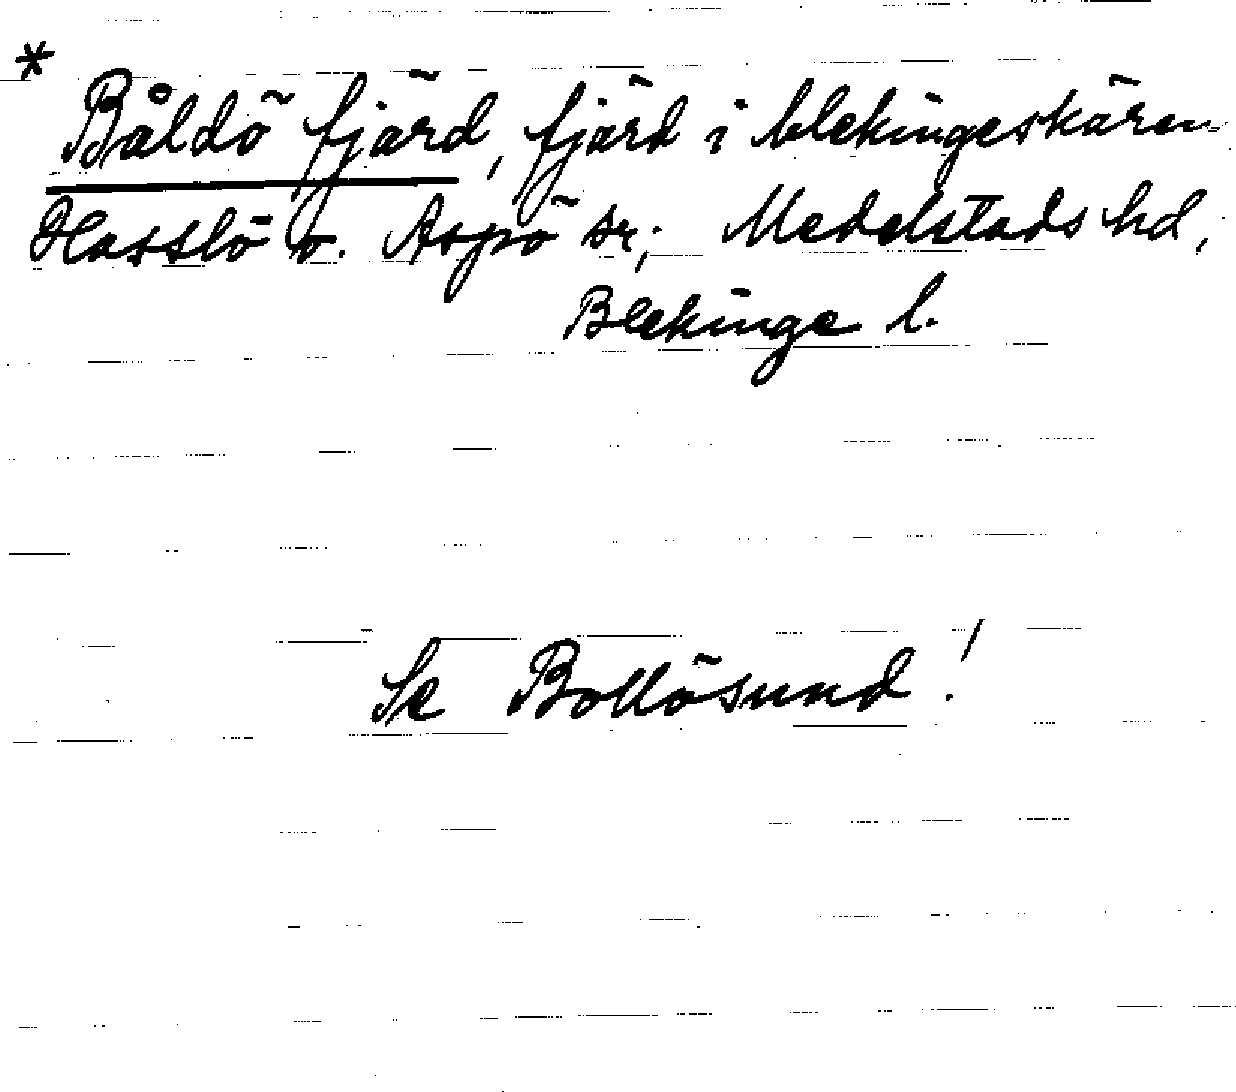 *
Båldö fjärd, fjärd i blekingeskären
Hasslö o. Aspö sr, Medelstads hd,
Blekinge l.
Se Bollösund!